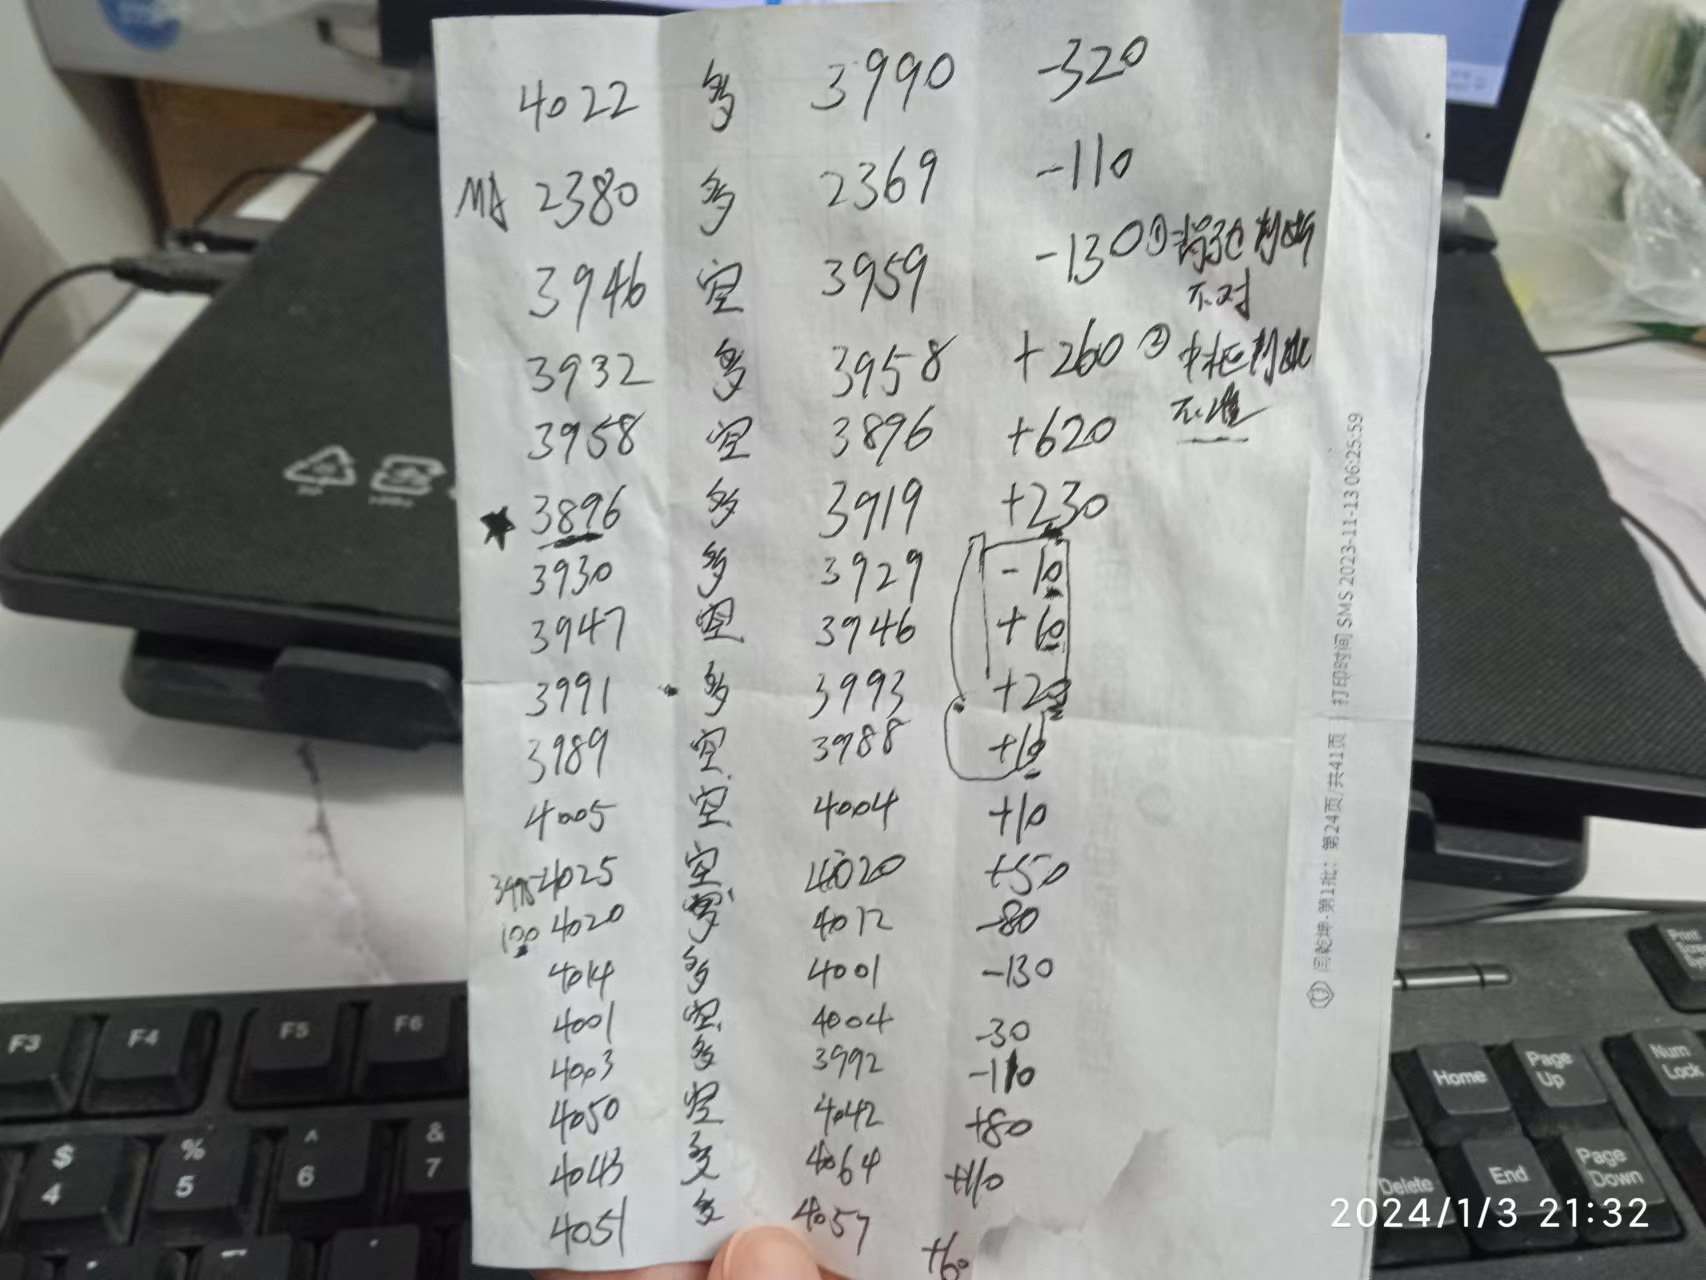 4022 多 3990 -320
MA 2380 多 2369 -110
3946 空 3959 -130 ① 判断
不对
3932 多 3958 +260 ② 中枢判断
不准
3958 空 3896 +620
★ 3896 多 3919 +230
3930 多 3929 -10
3947 空 3946 +10
3991 多 3993 +20
3989 空 3988 +10
4005 空 4004 +10
4025 空 4020 +50
100 4020 多 4012 -80
4014 多 4001 -130
4001 空 4004 -30
4003 多 3992 -110
4050 空 4042 +80
4043 多 4064
4051 多 4057 +60
闫乾坤-第1批: 第24页/共41页 | 打印时间 SMS 2023-11-13 06:25:59
F3
F4
F5
F6
$
4
%
5
^
6
&
7
Home
Page
Up
Num
Lock
Delete
End
Page
Down
2024/1/3 21:32